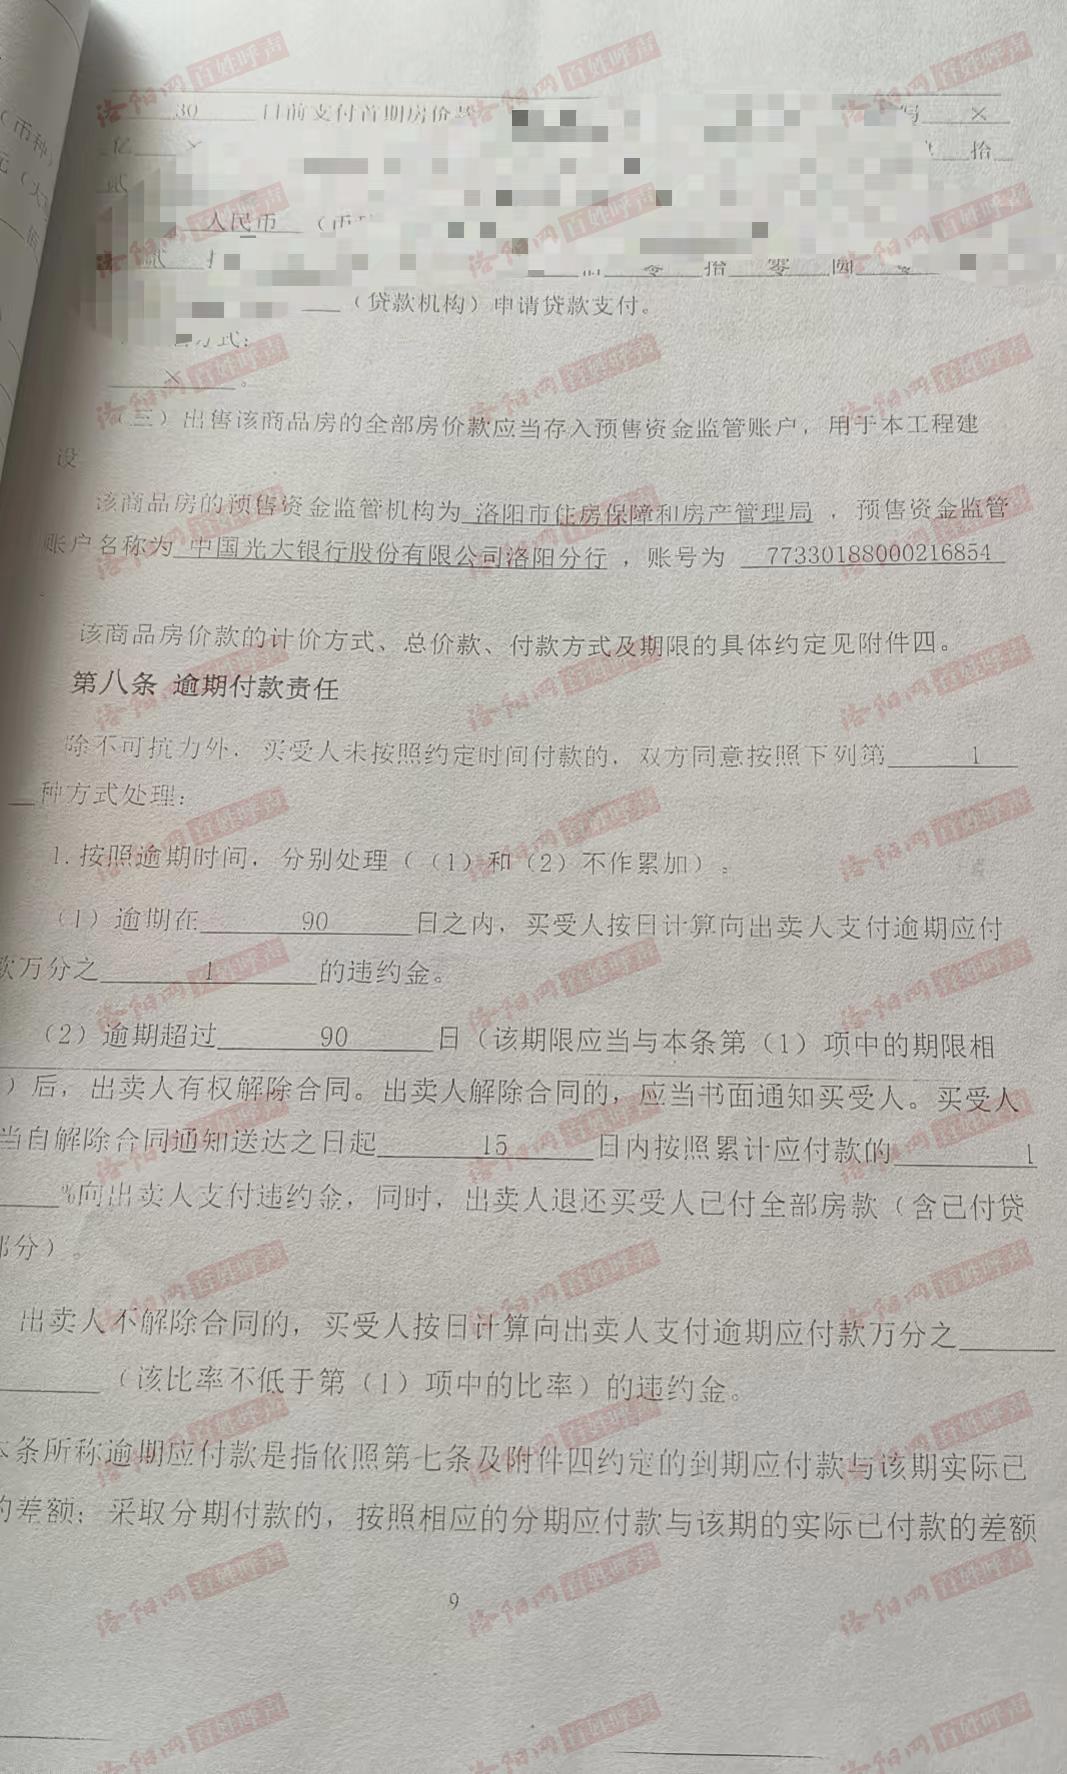 30 日前支付首期房价款 写 ×
亿 × 拾
贰
人民币 （币
贰
零 拾 零 圆
（贷款机构）申请贷款支付。
方式：
×。
（三）出售该商品房的全部房价款应当存入预售资金监管账户，用于本工程建
设
该商品房的预售资金监管机构为 洛阳市住房保障和房产管理局 ，预售资金监管
账户名称为 中国光大银行股份有限公司洛阳分行 ，账号为 77330188000216854
。
该商品房价款的计价方式、总价款、付款方式及期限的具体约定见附件四。
第八条 逾期付款责任
除不可抗力外，买受人未按照约定时间付款的，双方同意按照下列第 1
种方式处理：
1.按照逾期时间，分别处理（（1）和（2）不作累加）。
（1）逾期在 90 日之内，买受人按日计算向出卖人支付逾期应付
款万分之 1 的违约金。
（2）逾期超过 90 日（该期限应当与本条第（1）项中的期限相
）后，出卖人有权解除合同。出卖人解除合同的，应当书面通知买受人。买受人
当自解除合同通知送达之日起 15 日内按照累计应付款的 1
%向出卖人支付违约金，同时，出卖人退还买受人已付全部房款（含已付贷
部分）。
出卖人不解除合同的，买受人按日计算向出卖人支付逾期应付款万分之
（该比率不低于第（1）项中的比率）的违约金。
本条所称逾期应付款是指依照第七条及附件四约定的到期应付款与该期实际已
的差额；采取分期付款的，按照相应的分期应付款与该期的实际已付款的差额
9
洛阳网 百姓呼声